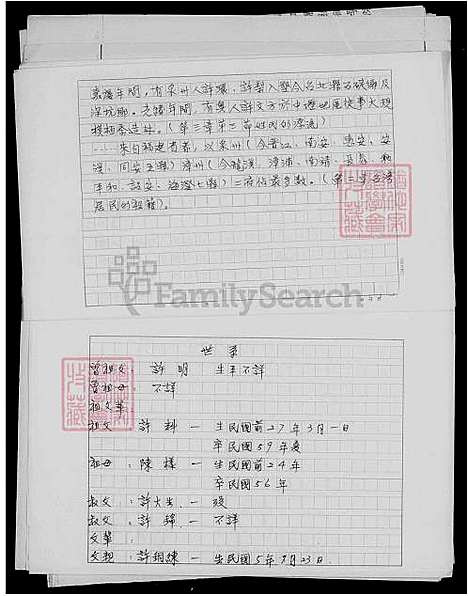 嘉慶年間，有泉州人許環、許梨入墾今台北縣石碇鄉及
深坑鄉。光緒年間，有粵人許文方於中壢地區從事大規
模栖委造林。（第三章第三節姓氏的源流）
...來自福建省者，以泉州（今晉江、南安、惠安、安
溪、同安五縣）漳州（今龍溪、漳浦、南靖、長泰、
平和、詔安、海澄七縣）二府佔最多數。（第三
居民的祖籍）。
FamilySearch
世系
曾祖父：許明 生卒不詳
曾祖母：不詳
祖父輩：
祖父：許科－生民國前27年3月一日
卒民國59年
祖母：陳樣－生民國前24年
卒民國56年
叔父：許大出－歿
叔父：許錦－不詳
父輩：
父親：許銅練－生民國5年9月23日